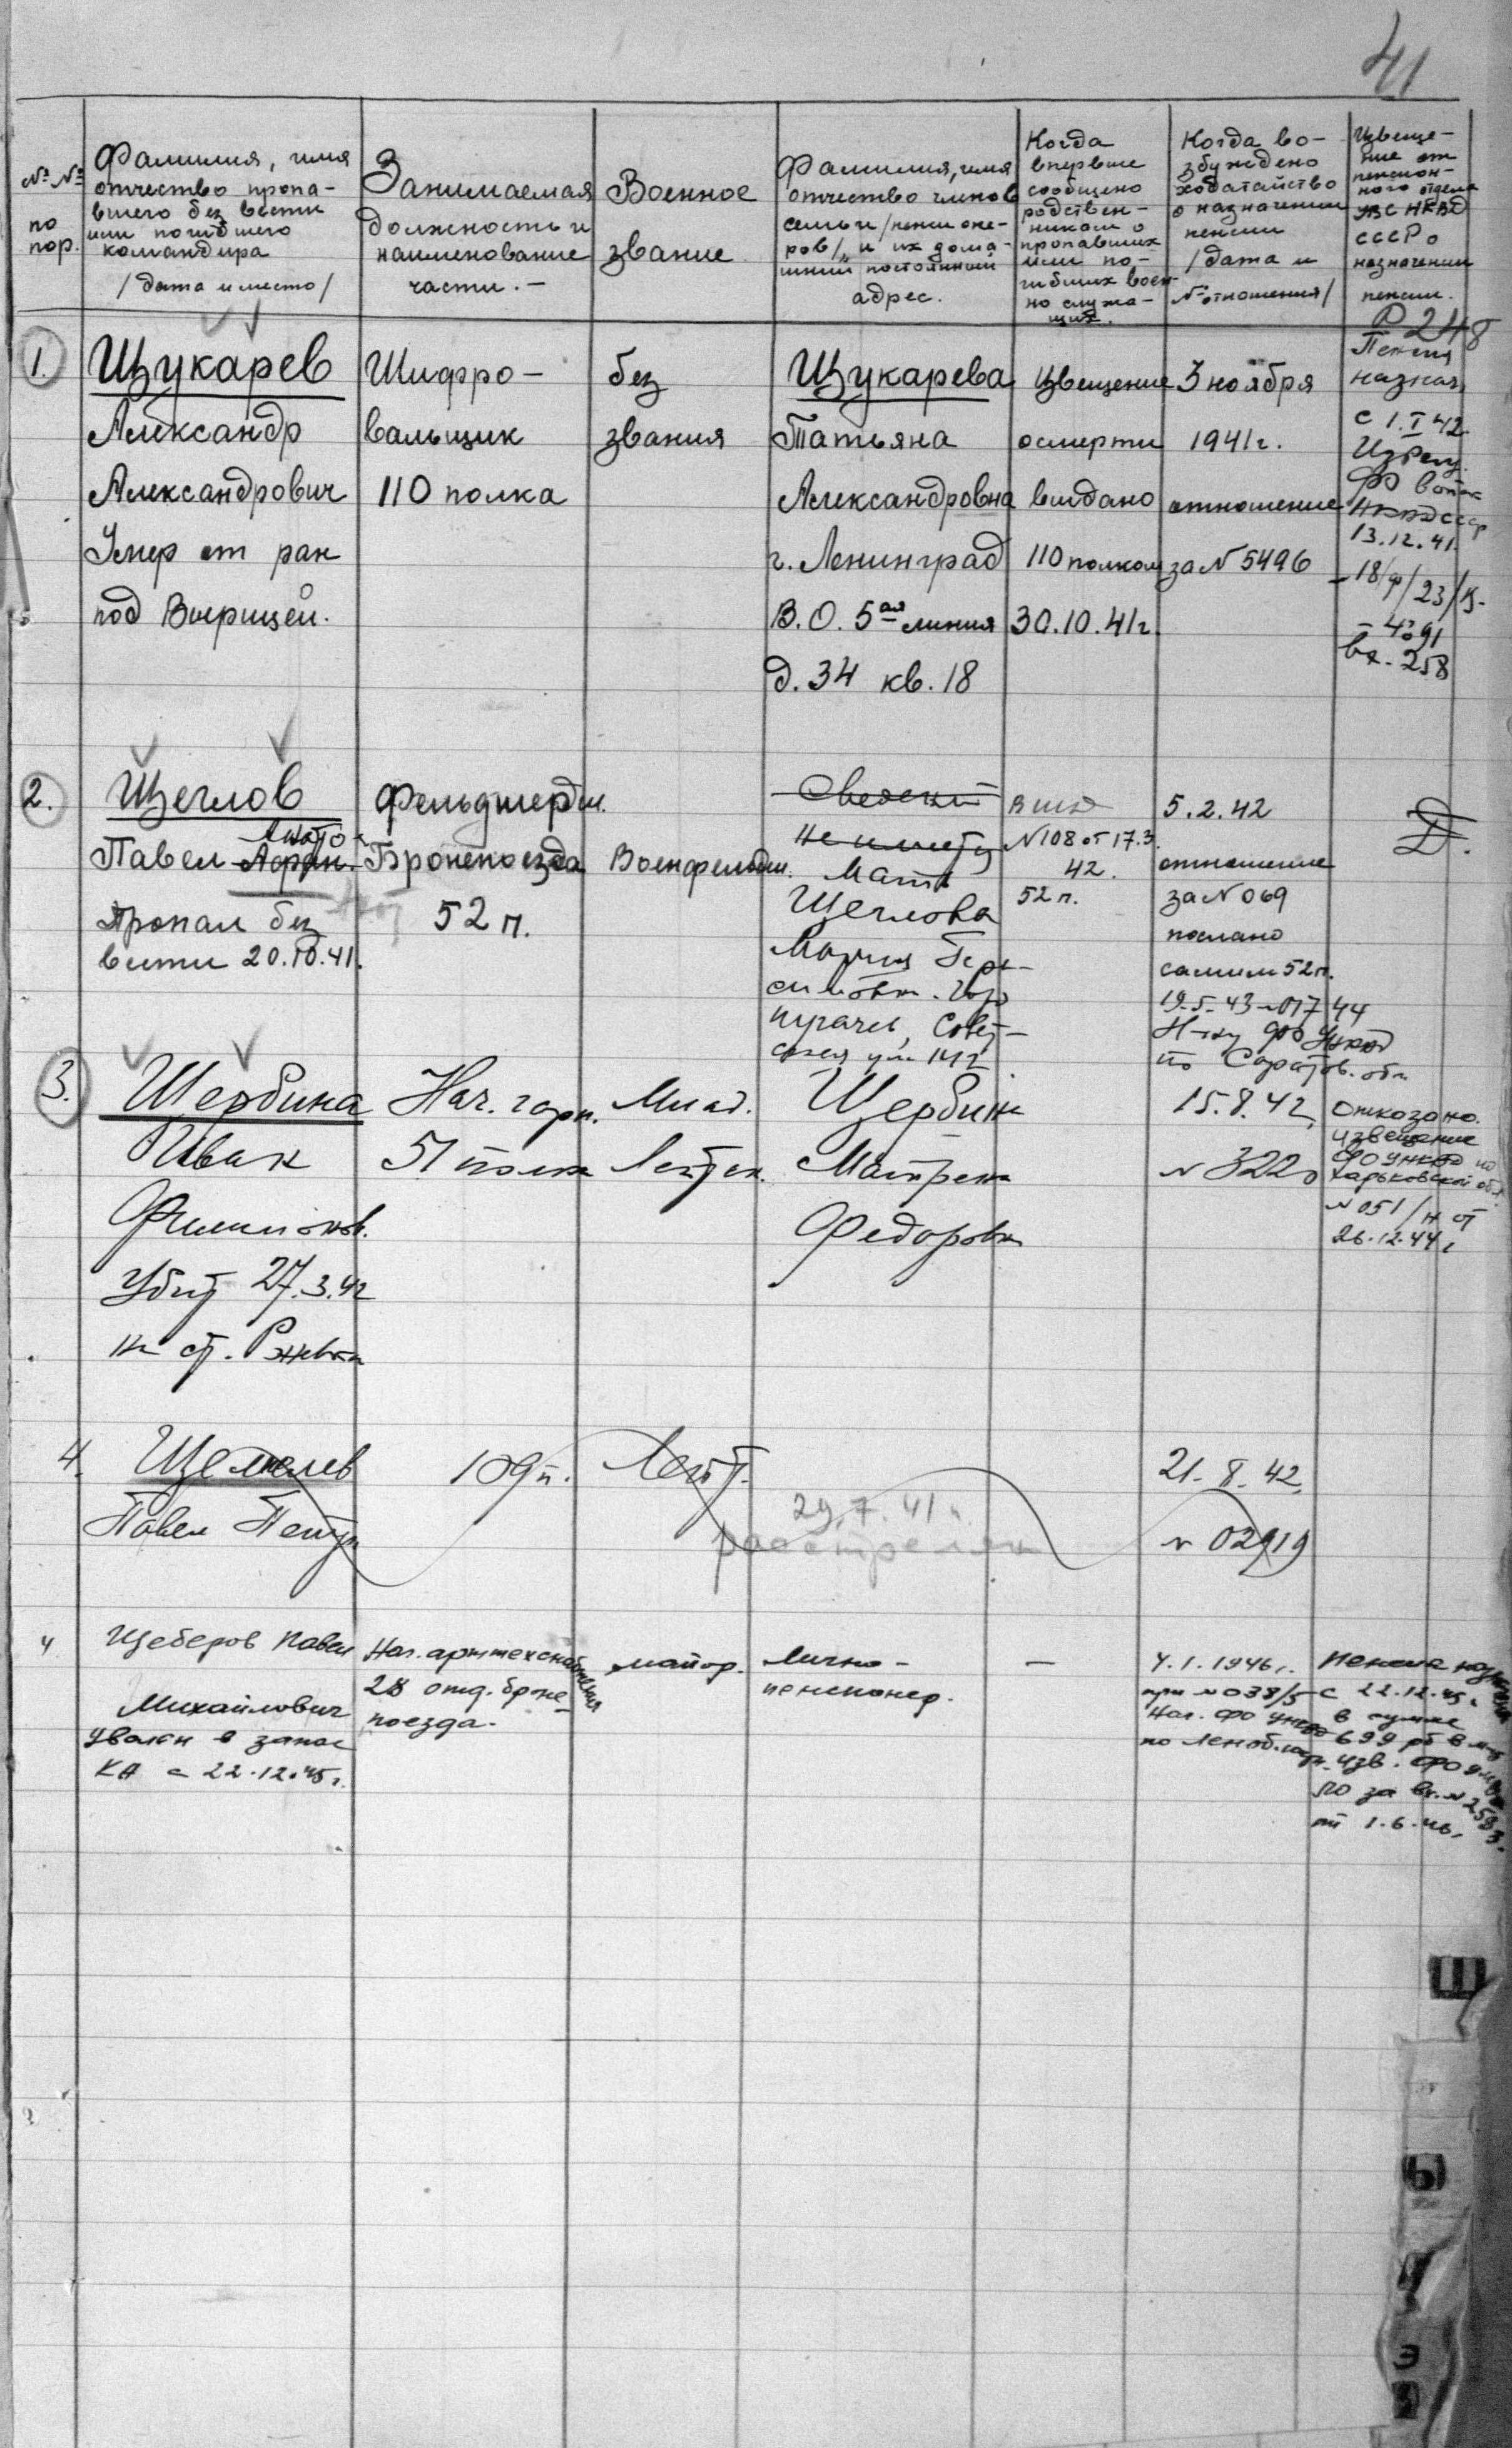 41
№ №
по
пор.
Фамилия, имя
отчество пропа-
вшего без вести
или погибшего
командира
/дата и место/
Занимаемая
должность и
наименование
части. –
Военное
звание
Фамилия, имя
отчество членов
семьи /пенсионе-
ров/, и их дома-
шний постоянный
адрес.
Когда
впервые
сообщено
родствен-
никам о
пропавших
или по-
гибших воен-
но служа-
щих.
Когда во-
збуждено
ходатайство
о назначении
пенсии
/дата и
№ отношения/
Извеще-
ние от
пенсион-
ного отдела
УВС НКВД
СССР о
назначении
пенсии.
1.
Щукарев
Александр
Александрович
Умер от ран
под Вырицей.
Шифро-
вальщик
110 полка
без
звания
Щукарева
Татьяна
Александровна
г. Ленинград
В.О. 5ая линия
д. 34 кв. 18
Извещение
о смерти
выдано
110 полком
30.10.41г.
3 ноября
1941г.
отношение
за N 5496
Р 248
Пенсия
назнач.
с 1.I 42.
НКВД СССР
13.12.41.
-18/ф/23/К-
вх. 258
2.
Щеглов
Павел
Пропал без
вести 20.10.41.
Фельдшер
Бронепоезда
52 п.
Военфельдш.
Сведений
не имеется
Мать
Щеглова
Мария Гера-
симовна. Гор.
Пугачев, Совет-
ская ул. 142
N108 от 17.3.
42.
52 п.
5.2.42
отношение
за N 069
послано
самим 52 п.
19.5.43
Н-ку ФО УНКВД
по Саратов. обл.
3.
Щербина
Иван
Филимонов.
Убит 27.3.42
на ст. Ржевка
Нач. гарн.
51 полка
Млад.
Лейтен.
Щербина
Матрена
Федоровна
15.8.42.
Отказано.
Извещение
ФО УНКВД по
Харьковской обл.
N 051/н от
26.12.44г.
4.
Щемелев
Павел Петр.
109 п.
Лейт.
29.7.41 г.
расстрелян
21.8.42.
N 02919
4
Щеберов Павел
Михайлович
уволен в запас
КА с 22.12.45г.
Нач. артехснабжения
28 отд. броне-
поезда.
майор.
Лично-
пенсионер.
–
4.1.1946г.
при N 038/5
Нач. ФО УНКВД
по Леноблсти.
Пенсия назначена
с 22.12.45г.
в сумме
699 рб в м-ц
изв. ФО УМВД
ЛО за вх. N 2583.
от 1.6.46.
Щ
Ы
Э